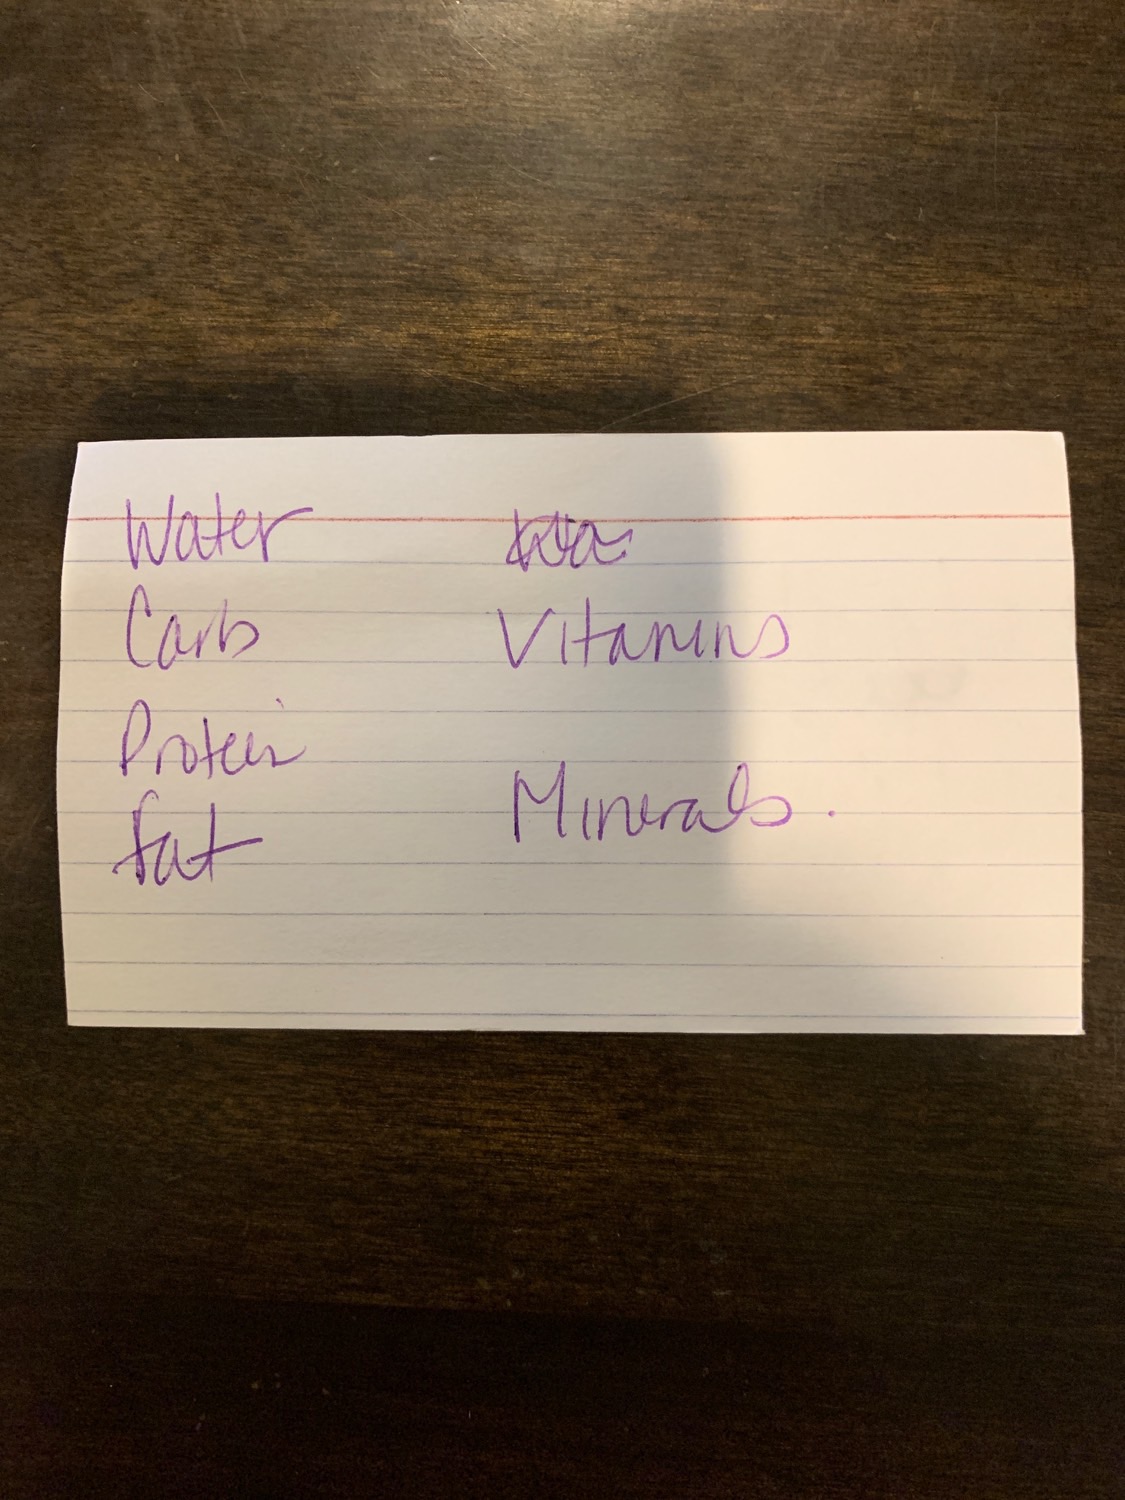 Water
Carb
Protein
fat
Vitamins
Minerals.